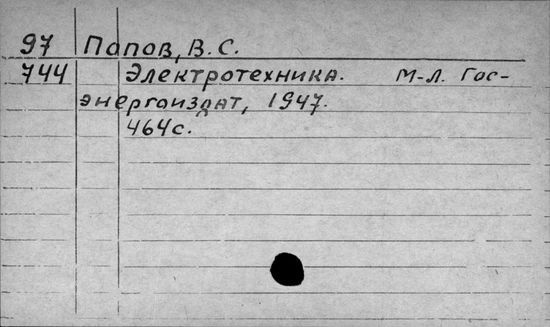 97 Попов, В. С.
744 Электротехника. М-Л. Гос-
энергоиздат, 1947.
464с.